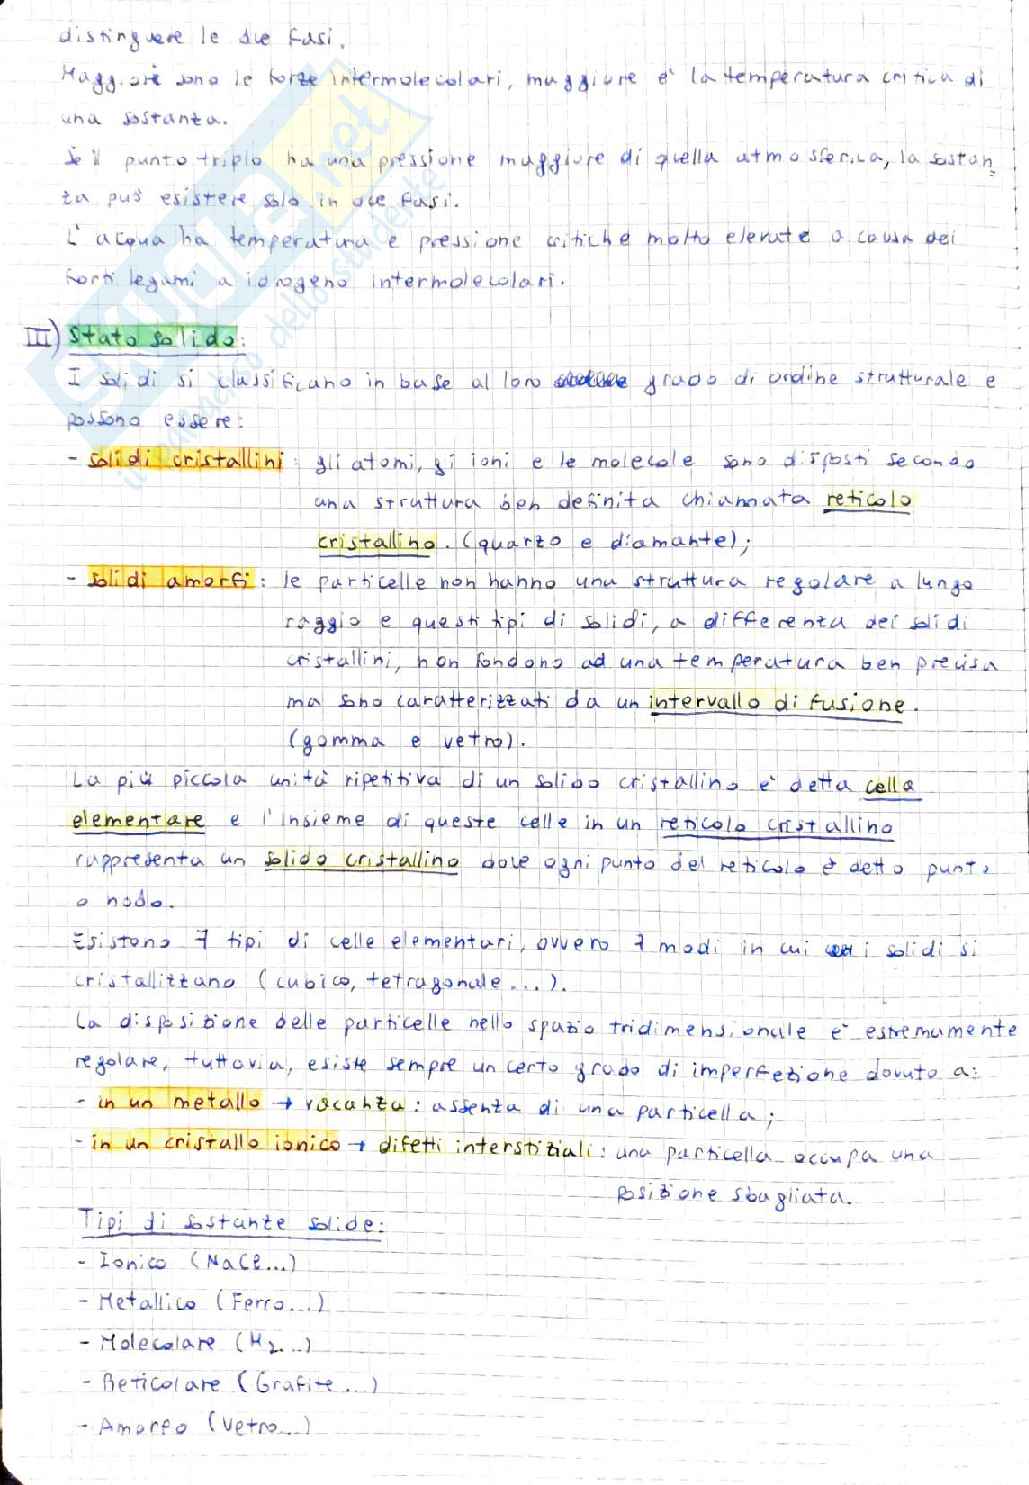 distinguere le due fasi.
Maggiori sono le forze intermolecolari, maggiore è la temperatura critica di
una sostanza.
Se il punto triplo ha una pressione maggiore di quella atmosferica, la sostan
za può esistere solo in due fasi.
L'acqua ha temperatura e pressione critiche molto elevate a causa dei
forti legami a idrogeno intermolecolari.
III) Stato solido:
I solidi si classificano in base al loro grado di ordine strutturale e
possono essere:
- solidi cristallini: gli atomi, gi ioni e le molecole sono disposti secondo
una struttura ben definita chiamata reticolo
cristallino. (quarzo e diamante);
- solidi amorfi: le particelle non hanno una struttura regolare a lungo
raggio e questi tipi di solidi, a differenza dei solidi
cristallini, non fondono ad una temperatura ben precisa
ma sono caratterizzati da un intervallo di fusione.
(gomma e vetro).
La più piccola unità ripetitiva di un solido cristallino è detta cella
elementare e l'insieme di queste celle in un reticolo cristallino
rappresenta un solido cristallino dove ogni punto del reticolo è detto punto
o nodo.
Esistono 7 tipi di celle elementari, ovvero 7 modi in cui i solidi si
cristallizzano (cubico, tetragonale...).
La disposizione delle particelle nello spazio tridimensionale è estremamente
regolare, tuttavia, esiste sempre un certo grado di imperfezione dovuto a:
- in un metallo → vacanza: assenza di una particella;
- in un cristallo ionico → difetti interstiziali: una particella occupa una
posizione sbagliata.
Tipi di sostanze solide:
- Ionico (NaCl...)
- Metallico (Ferro...)
- Molecolare (H₂...)
- Reticolare (Grafite...)
- Amorfo (Vetro...)
skuola.net
il paradiso dello studente